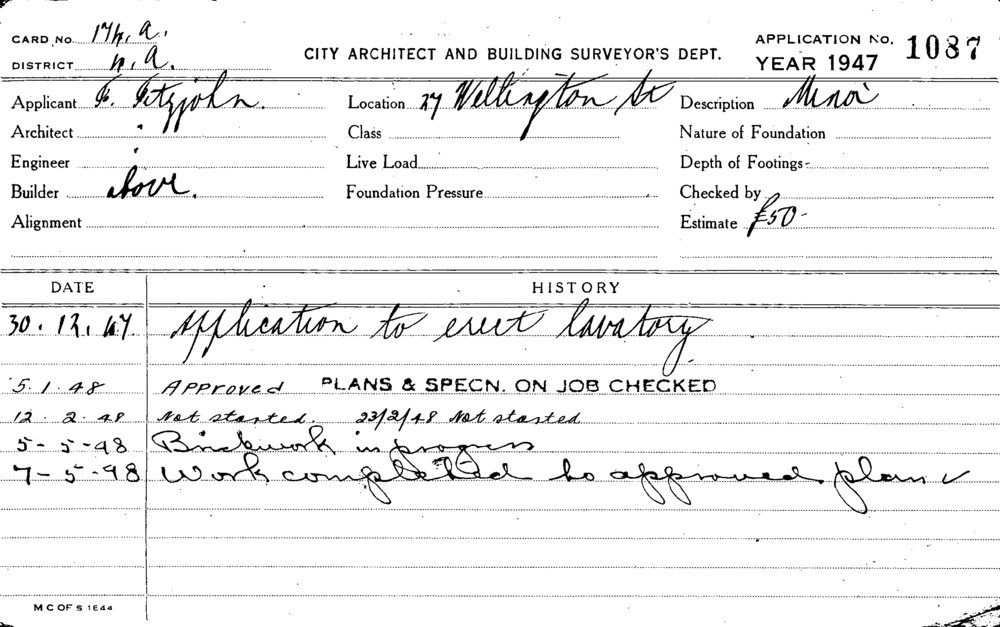 CARD NO. 174.a.
DISTRICT n.a.
CITY ARCHITECT AND BUILDING SURVEYOR'S DEPT.
APPLICATION NO. 1087
YEAR 1947
Applicant F. Fitzjohn. Location 27 Wellington St Description Minor
Architect " Class Nature of Foundation
Engineer " Live Load Depth of Footings
Builder above. Foundation Pressure Checked by
Alignment Estimate £50-
DATE HISTORY
30.12.47. Application to erect lavatory.
5.1.48 Approved PLANS & SPECN. ON JOB CHECKED
12.2.48 Not started. 23/2/48 Not started
5-5-48 Brickwork in progress
7-5-48 Work completed to approved plan ✓
M C OF S 1844